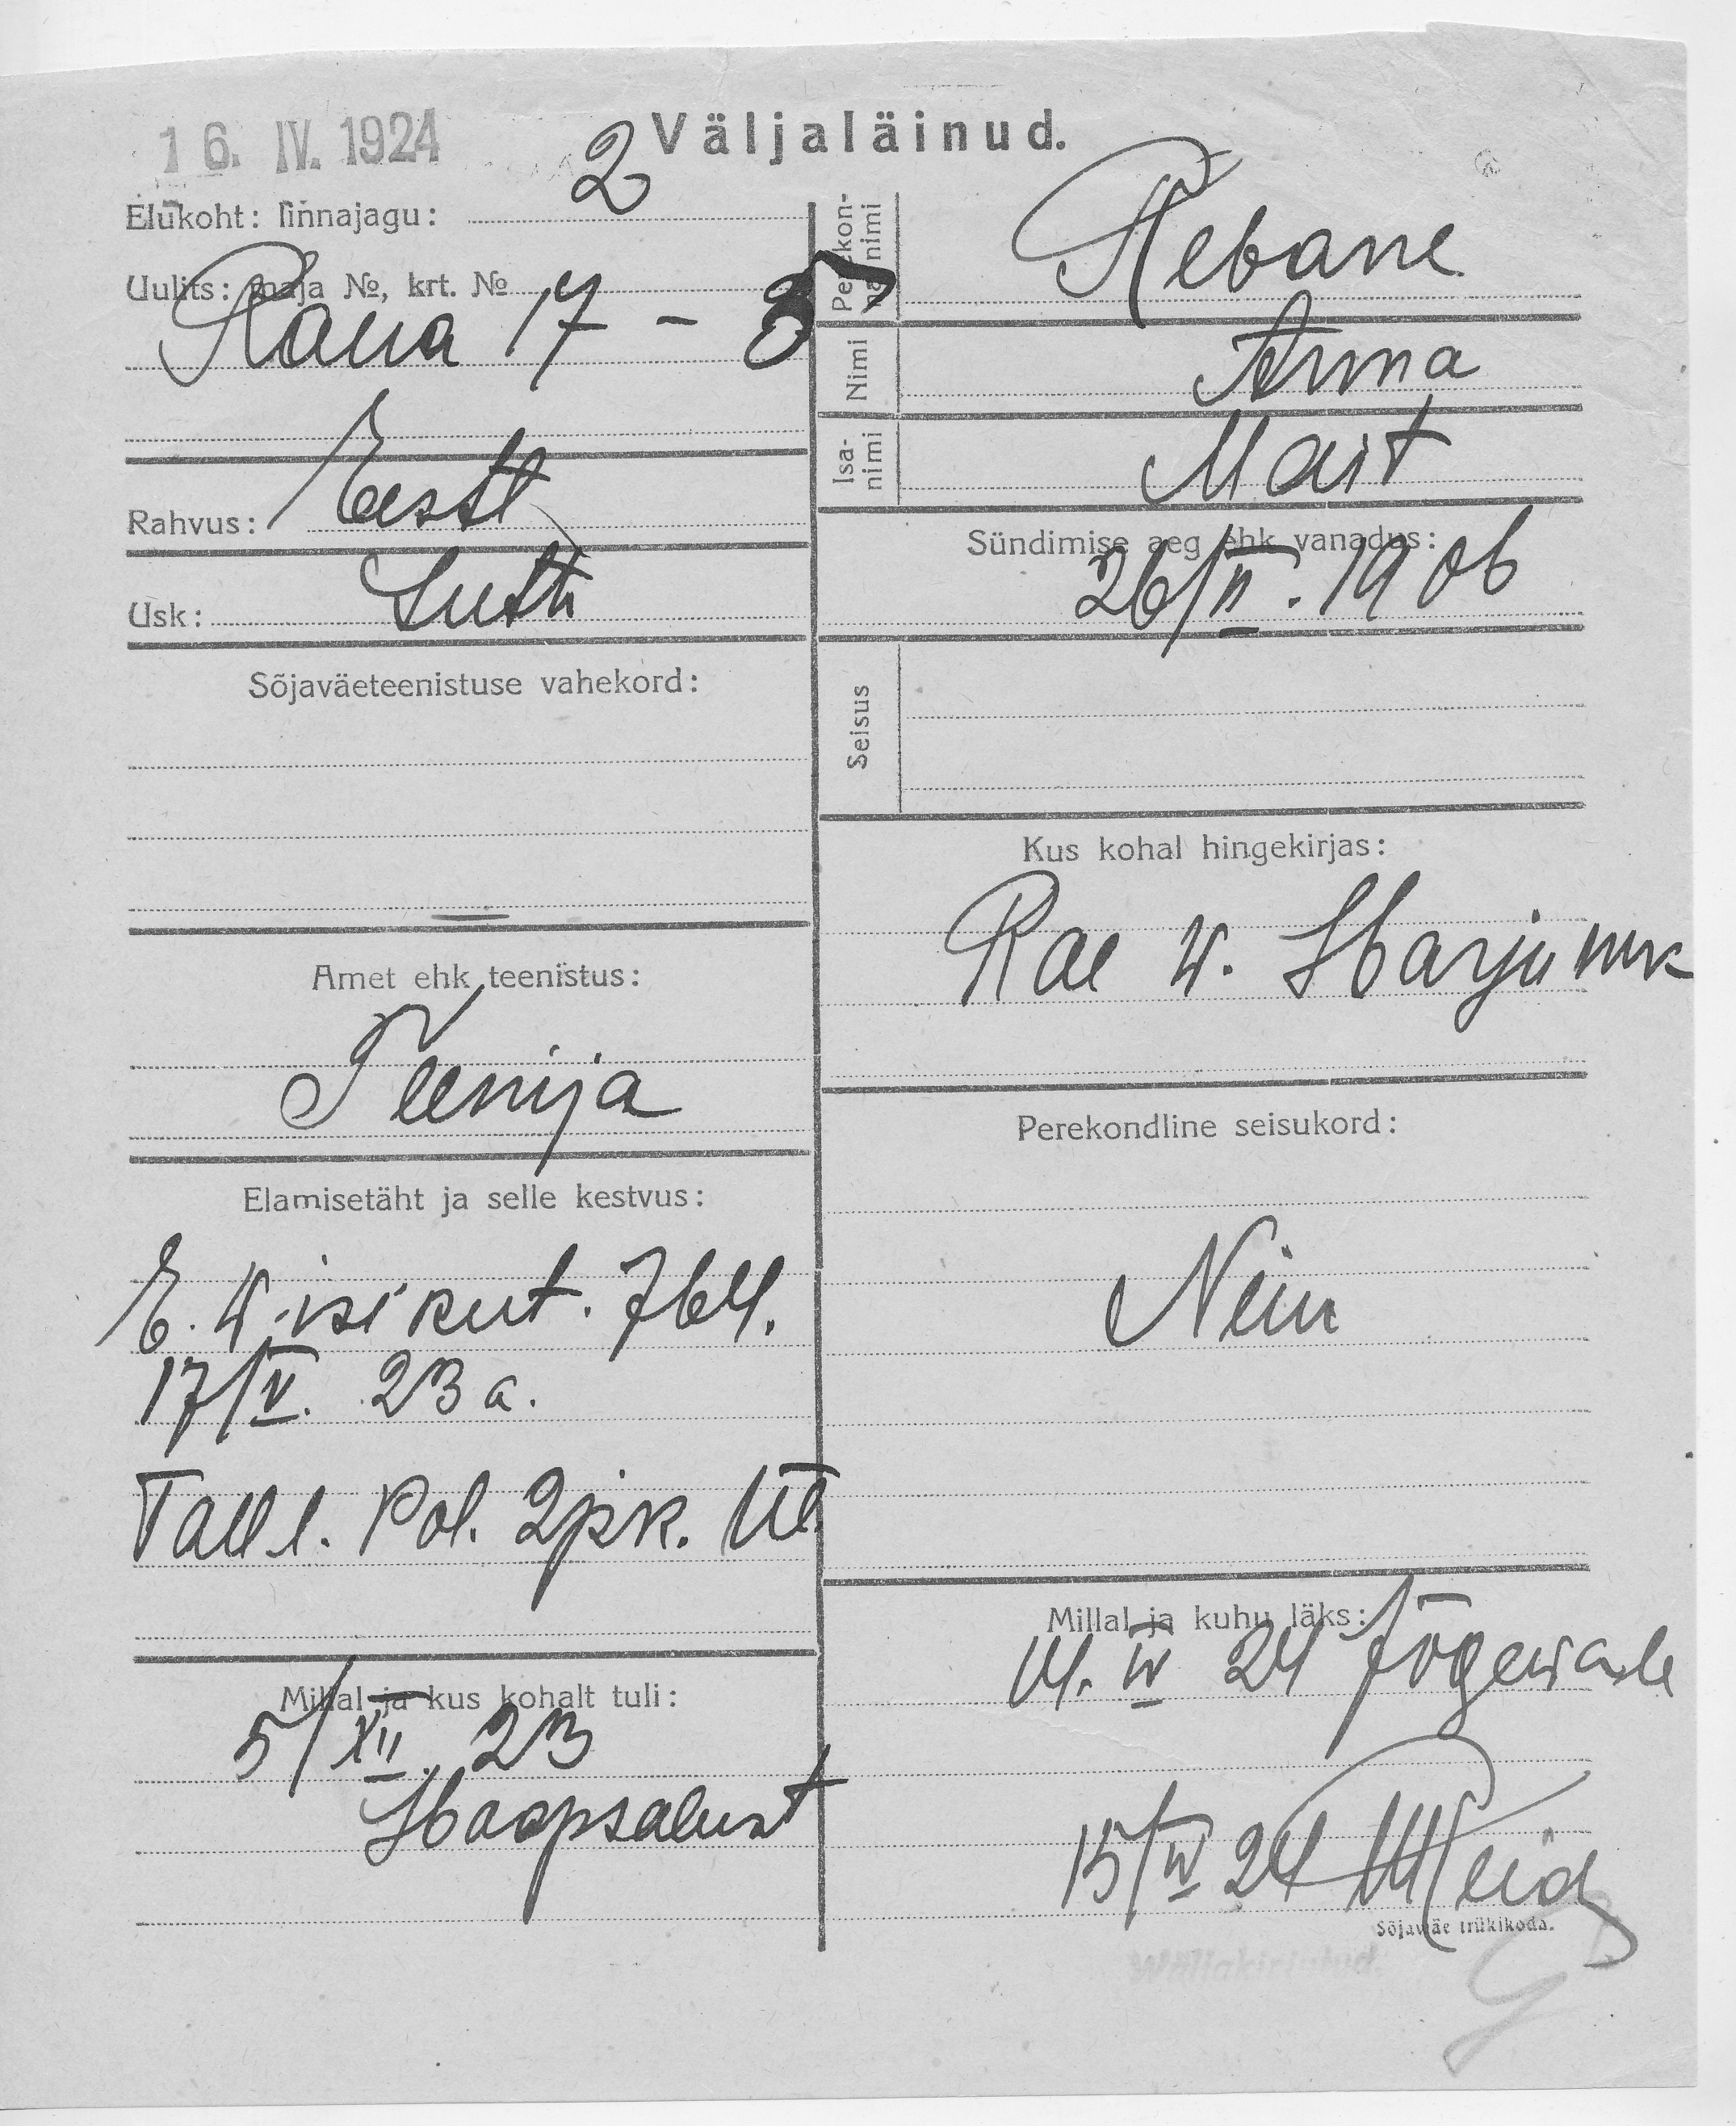 16. IV. 1924
Väljaläinud.
Elukoht: linnajagu: 2
Uulits: maja №, krt. №
Raua 17 -
Rahvus: Eesti
Usk: Luth
Sõjaväeteenistuse vahekord:
Amet ehk teenistus:
Teenija
Elamisetäht ja selle kestvus:
E. W. isikut. 764.
17/V. 23 a.
Tall. Pol. 2 jsk. ül.
Millal ja kus kohalt tuli:
5/XII. 23
Haapsalust
Perekonna nimi
Rebane
Nimi
Anna
Isa-nimi
Mait
Sündimise aeg ehk vanadus:
26/II. 1906
Seisus
Kus kohal hingekirjas:
Rae w. Harju mk
Perekondline seisukord:
Neiu
Millal ja kuhu läks:
14. IV 24 Jõgewale
15/IV 24
Sõjawäe trükikoda.